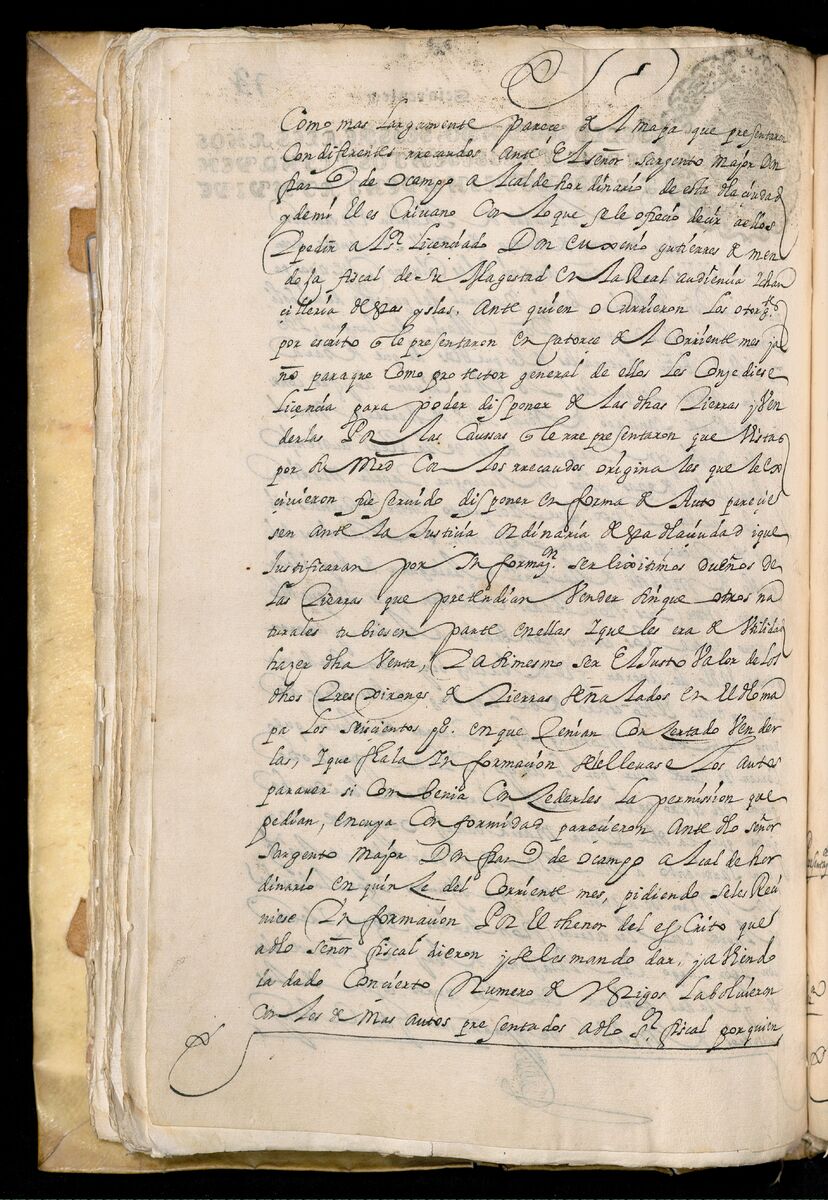 Como mas largamente parece del mapa que presentaron
Con diferentes rrecaudos ante El señor sargento major Don
de ocampo Alcalde hordinario de esta dha çiudad
y de mi El escrivano Con lo que se le ofreció decir a ellos
pedir al sr Licenciado Don euxenio gutierres de men
dosa fiscal de su Magestad en la Real audiençia I chan
cilleria de yslas, ante quien o Currieron Los otorgtes
por escrito q le presentaron en catorce del Corriente mes ja
ño para que Como protector general de ellos Les Conçediese
Licençia para poder disponer de las dhas Tierras y ven
derlas Por las Caussas q le rrepresentaron que Vistas
por su Mrd Con los rrecaudos originales que le ex
civieron fue servido disponer en forma de Auto parecie
sen ante la Justicia ordinaria de dha çiudad i que
Justificaran por Informaçn ser lixitimos dueños de
las Tierras que pretendian Vender sin que otros na
turales tubiesen parte en ellas I que les era de Utilidad
hazer dha Venta, I asimesmo ser El Justo Valor de los
dhos Tres de Tierras señalados en El dho ma
pa los seiscientos ps. en que Tenian Consertado Vender
las, I que fha la Informaçion se le llevase Los autos
para ver si Combenia Consederles la permission que
pedian, en cuya Conformidad pareçieron Ante dho señor
sargento major Don de ocampo alcalde hor
dinario en quinse del Corriente mes, pidiendo se les Reçi
viese Informacion Por El thenor del escrito que
a dho señor fiscal dieron y se les mando dar, ja viendo
la dado Concierto Numero de testigos La bolvieron
con los demas autos presentados a dho sr fiscal por quien